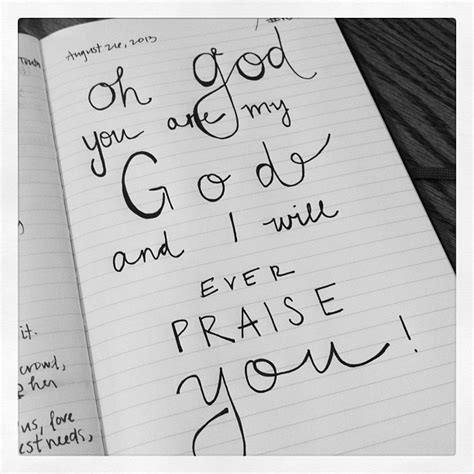 August 26, 2013
oh god
you are my
God
and I will
EVER
PRAISE
you!
it.
crowd,
her
us, love
est needs,